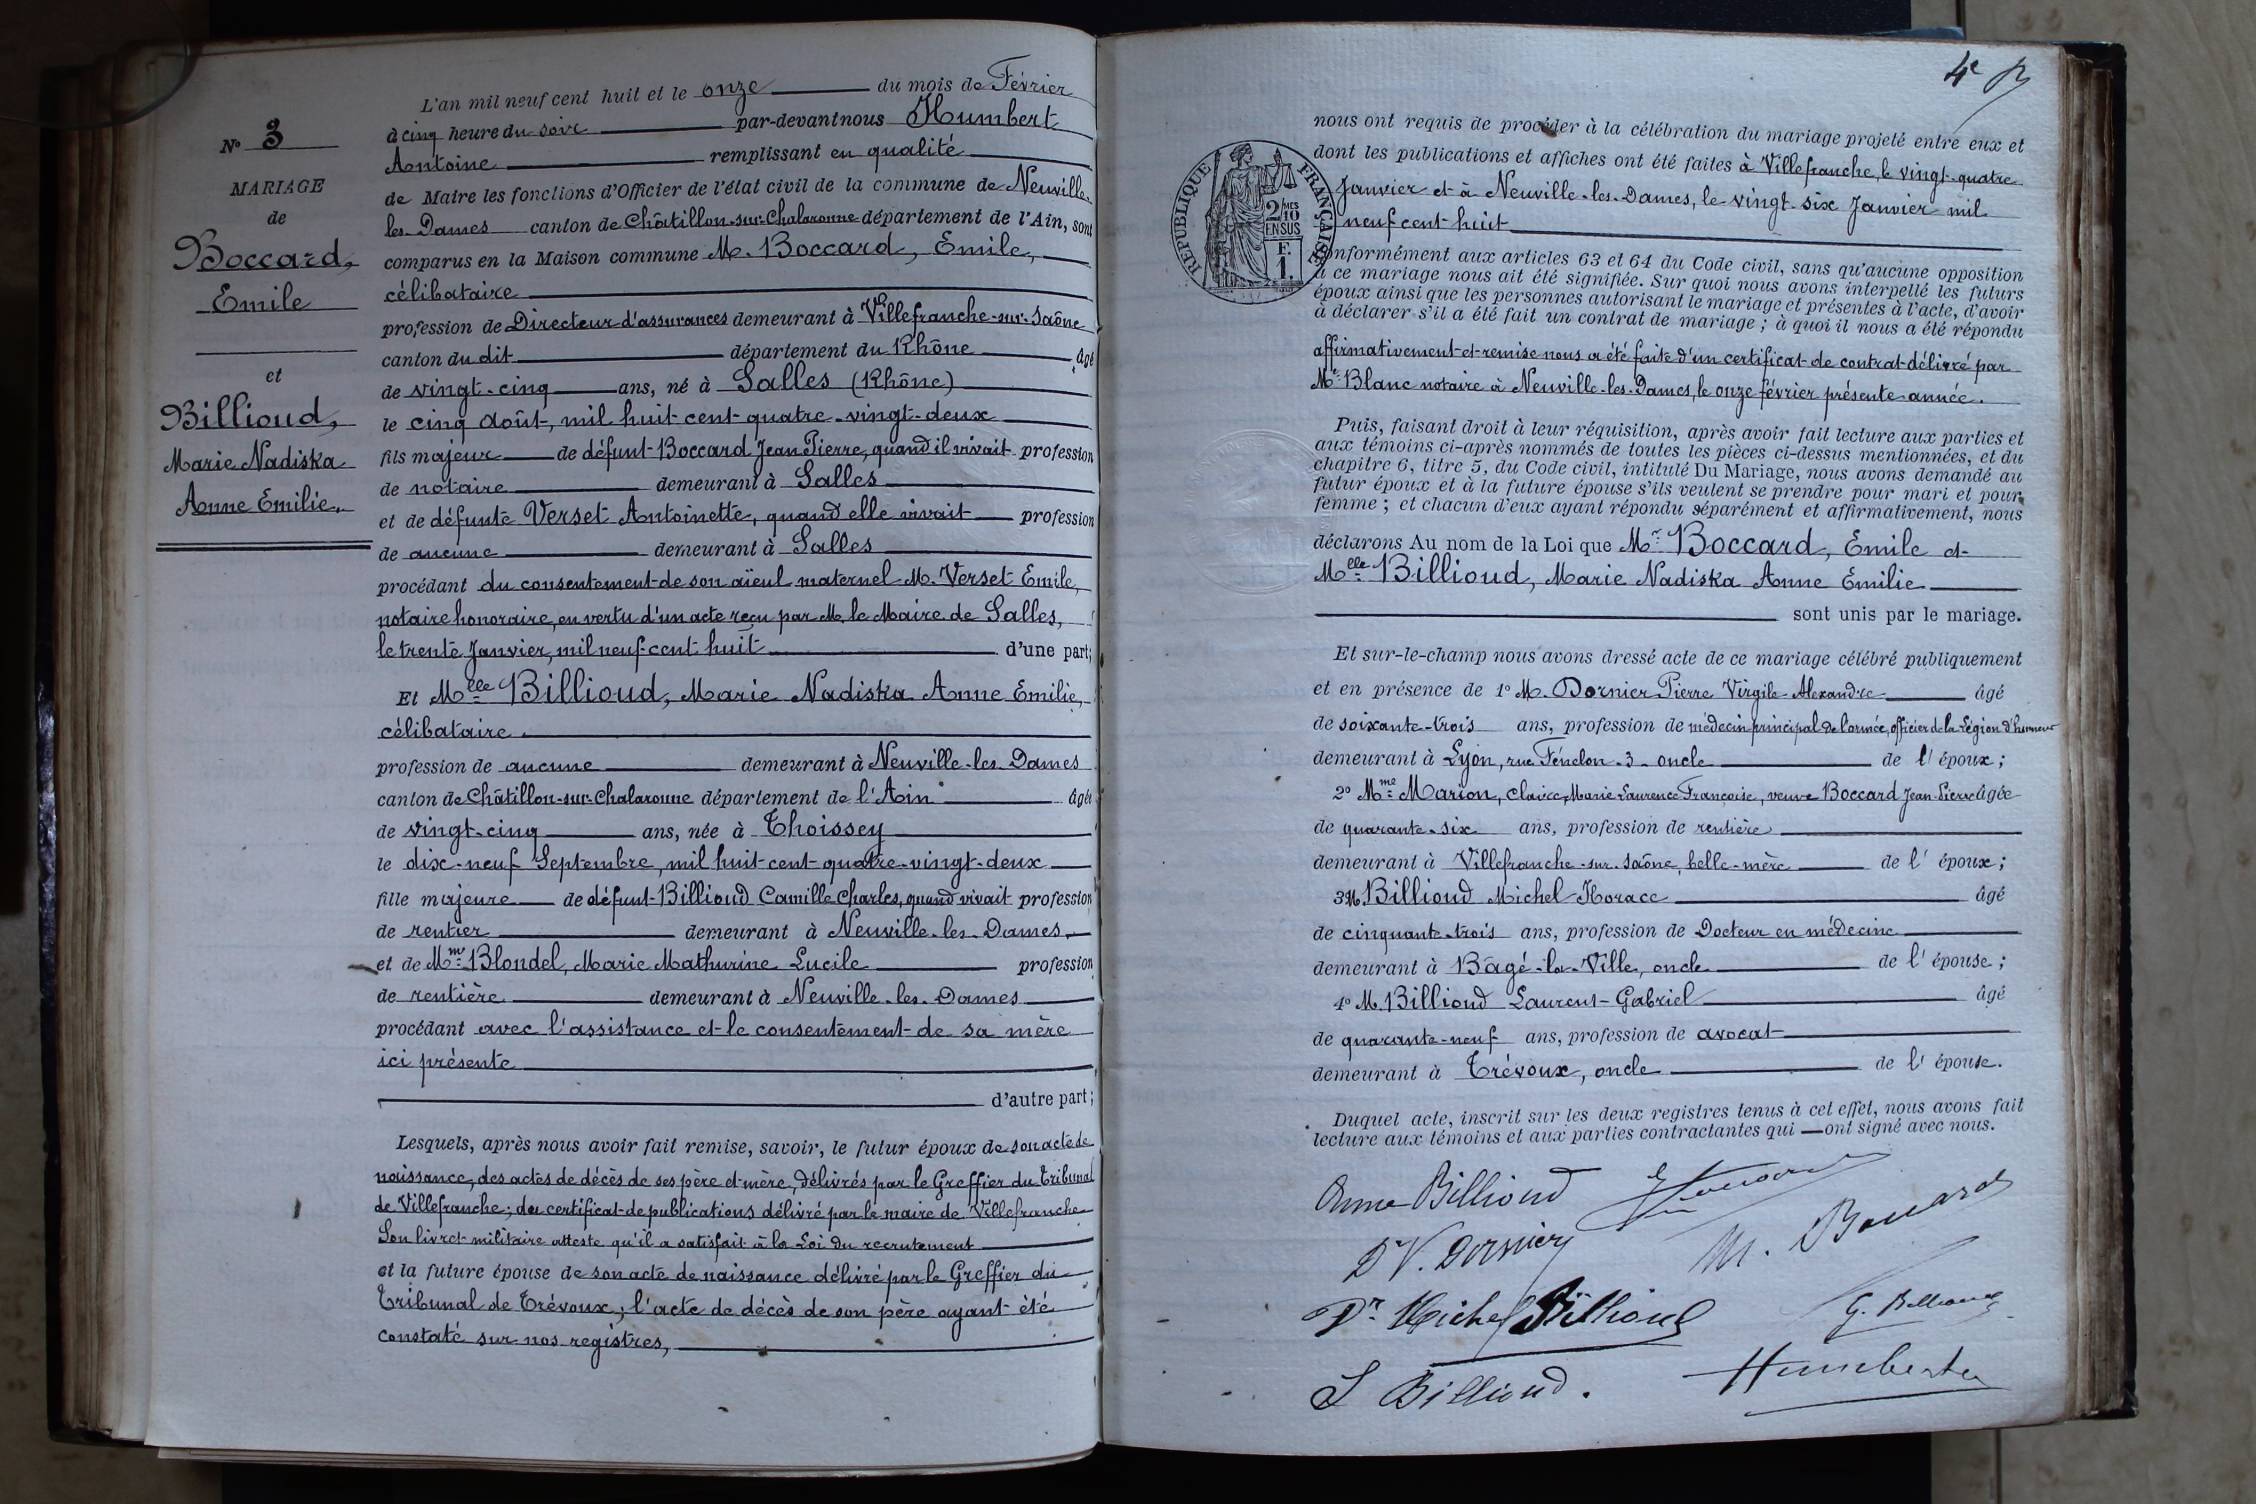 N° 3
MARIAGE
de
Boccard,
Emile
et
Billioud,
Marie Nadiska
Anne Emilie.
L'an mil neuf cent huit et le onze du mois de Février
à cinq heure du soir par-devant nous Humbert
Antoine remplissant en qualité
de Maire les fonctions d'Officier de l'état civil de la commune de Neuville-
les-Dames canton de Châtillon-sur-Chalaronne département de l'Ain, sont
comparus en la Maison commune M. Boccard, Emile,
célibataire
profession de Directeur d'assurances demeurant à Villefranche-sur-Saône
canton du dit département du Rhône âgé
de vingt-cinq ans, né à Salles (Rhône)
le cinq Août, mil huit-cent-quatre-vingt-deux
fils majeur de défunt Boccard Jean Pierre, quand il vivait profession
de notaire demeurant à Salles
et de défunte Verset Antoinette, quand elle vivait profession
de aucune demeurant à Salles
procédant du consentement de son aïeul maternel M. Verset Emile,
notaire honoraire, en vertu d'un acte reçu par M. le Maire de Salles,
le trente Janvier, mil neuf-cent huit d'une part;
Et Mlle Billioud, Marie Nadiska Anne Emilie,
célibataire
profession de aucune demeurant à Neuville-les-Dames
canton de Châtillon-sur-Chalaronne département de l'Ain âgée
de vingt-cinq ans, née à Thoissey
le dix-neuf Septembre, mil huit-cent-quatre-vingt-deux
fille majeure de défunt Billioud Camille Charles, quand vivait profession
de rentier demeurant à Neuville-les-Dames,
et de Mme Blondel, Marie Mathurine Lucile profession
de rentière demeurant à Neuville-les-Dames
procédant avec l'assistance et le consentement de sa mère
ici présente
d'autre part;
Lesquels, après nous avoir fait remise, savoir, le futur époux de son acte de
naissance, des actes de décès de ses père et mère, délivrés par le Greffier du Tribunal
de Villefranche; du certificat de publications délivré par le maire de Villefranche
Son livret militaire atteste qu'il a satisfait à la Loi du recrutement
et la future épouse de son acte de naissance délivré par le Greffier du
Tribunal de Trévoux; l'acte de décès de son père ayant été
constaté sur nos registres,
4e
nous ont requis de procéder à la célébration du mariage projeté entre eux et
dont les publications et affiches ont été faites à Villefranche, le vingt-quatre
Janvier et à Neuville-les-Dames, le vingt-six Janvier mil
neuf cent huit
RÉPUBLIQUE FRANÇAISE
2/10 MES
EN SUS
F.
1.
conformément aux articles 63 et 64 du Code civil, sans qu'aucune opposition
à ce mariage nous ait été signifiée. Sur quoi nous avons interpellé les futurs
époux ainsi que les personnes autorisant le mariage et présentes à l'acte, d'avoir
à déclarer s'il a été fait un contrat de mariage; à quoi il nous a été répondu
affirmativement et remise nous a été faite d'un certificat de contrat délivré par
Me Blanc notaire à Neuville-les-Dames, le onze février présente année.
Puis, faisant droit à leur réquisition, après avoir fait lecture aux parties et
aux témoins ci-après nommés de toutes les pièces ci-dessus mentionnées, et du
chapitre 6, titre 5, du Code civil, intitulé Du Mariage, nous avons demandé au
futur époux et à la future épouse s'ils veulent se prendre pour mari et pour
femme; et chacun d'eux ayant répondu séparément et affirmativement, nous
déclarons Au nom de la Loi que Mr Boccard, Emile et
Mlle Billioud, Marie Nadiska Anne Emilie
sont unis par le mariage.
Et sur-le-champ nous avons dressé acte de ce mariage célébré publiquement
et en présence de 1° M. Dornier Pierre Virgile Alexandre âgé
de soixante-trois ans, profession de médecin principal de l'armée, officier de la Légion d'honneur
demeurant à Lyon, rue Fénelon 3 oncle de l'époux;
2° Mme Marion, Claire, Marie Laurence Françoise, veuve Boccard Jean-Pierre âgée
de quarante-six ans, profession de rentière
demeurant à Villefranche-sur-Saône, belle-mère de l'époux;
3° M. Billioud Michel Horace âgé
de cinquante-trois ans, profession de Docteur en médecine
demeurant à Bâgé-la-Ville, oncle de l'épouse;
4° M. Billioud Laurent-Gabriel âgé
de quarante-neuf ans, profession de avocat
demeurant à Trévoux, oncle de l'épouse.
Duquel acte, inscrit sur les deux registres tenus à cet effet, nous avons fait
lecture aux témoins et aux parties contractantes qui ont signé avec nous.
Anne Billioud
Dr V. Dornier M. Boccard
Dr Michel Billioud G. Billioud
L Billioud. Humbert